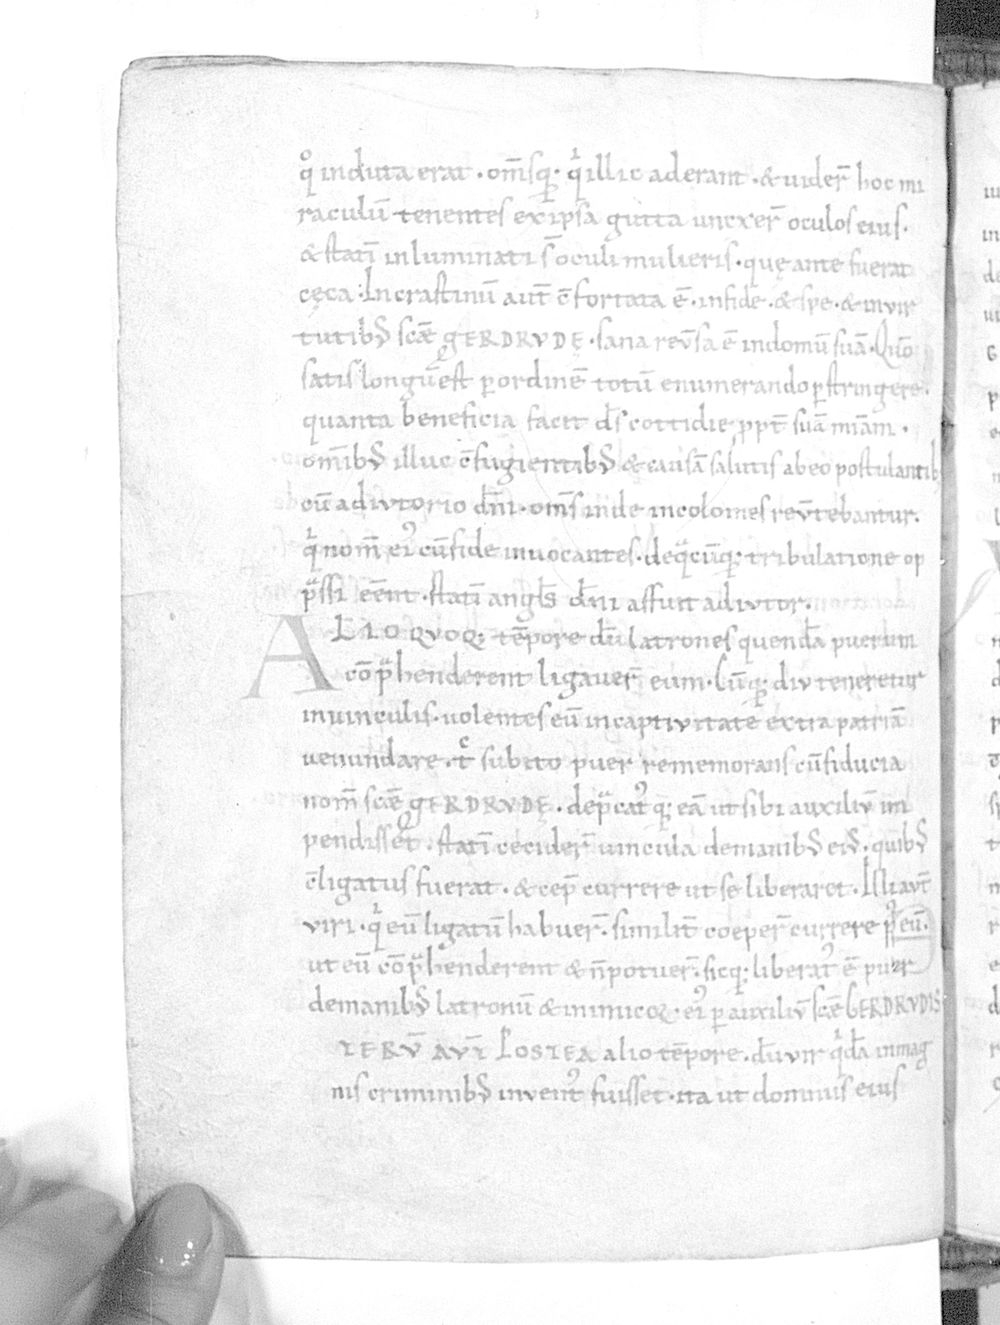 qͦ induta erat · om̅sq; · qͥ illic aderant · & uider̅ hoc mi
raculu̅ tenentes ex ipsa gutta unxer̅ oculos eius ·
& stati̅ inluminati s̅ oculi mulieris · quę ante fuerat
cęca · In crastinu̅ aut̅ c̅fortata e̅ · in fide · & spe · & in uir
tutibꝰ sc̅ę GERDRVDĘ · sana reu̅sa e̅ in domu̅ sua̅ · Quo̅
satis longu̅ est p ordine̅ totu̅ enumerando p̱stringere ·
quanta beneficia facit d̅s cottidie ppt̅ sua̅ mi̅am ·
om̅ibꝰ illuc c̅fugientibꝰ & causa̅ salutis ab eo postulantibꝰ
cu̅ adiutorio dn̅i · om̅s inde incolomes reu̅tebantur ·
qͥ nom̅ ei᾿ cu̅ fide inuocantes · de qͣcu̅q; tribulatione op
pͣssi ee̅nt · stati̅ angl̅s dn̅i affuit adiutor ·
ALIO QVOQ; te̅pore du̅ latrones quenda̅ puerum
co̅pͣhenderent ligauer̅ eum · Cu̅q; diu teneretur
in uinculis · uolentes eu̅ in captiuitate̅ extra patria̅
uenundare · tͨ subito puer rememorans cu̅ fiducia
nom̅ sc̅ę GERDRVDĘ · depͣcat᾿q; ea̅ ut sibi auxiliu̅ im
pendisset · stati̅ cecider̅ uincula de manibꝰ eiꝰ · quibꝰ
c̅ligatus fuerat · & cep̅ currere ut se liberaret · Illi aut̅
uiri · qͥ eu̅ ligatu̅ habuer̅ · similit̅ coeper̅ currere p᾿ eu̅ ·
ut eu̅ co̅pͣhenderent & n̅ potuer̅ · sicq; liberat᾿ e̅ puer
de manibꝰ latronu̅ & inimicoꝝ · ei᾿ p auxiliu̅ sc̅ę GERDRVDIS
ITERV̅ AVT̅ POSTEA alio te̅pore · du̅ uir qͥda̅ in mag
nis criminibꝰ inuent᾿ fuisset · ita ut dominus eius